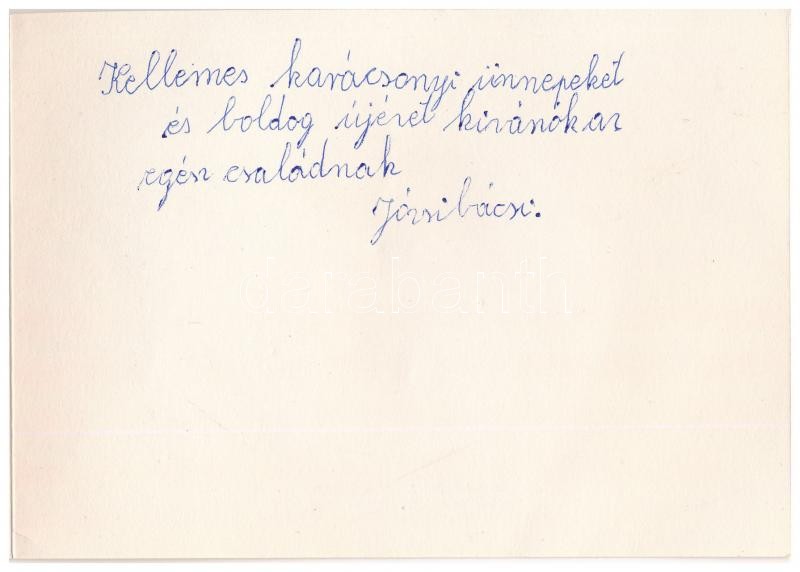 Kellemes karácsonyi ünnepeket
és boldog újévet kivánok az
egész családnak
Józsi bácsi.
darabanth